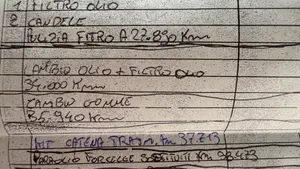 1 FILTRO OLIO
2 CANDELE
PULIZIA FITRO A 22.890 Km
CAMBIO OLIO + FILTRO OLIO
34.000 Km
CAMBIO GOMME
35.940 Km
KIT CATENA TRASM. Km 37.713
PARAOLIO FORCELLE SOSTITUITI Km 38.473